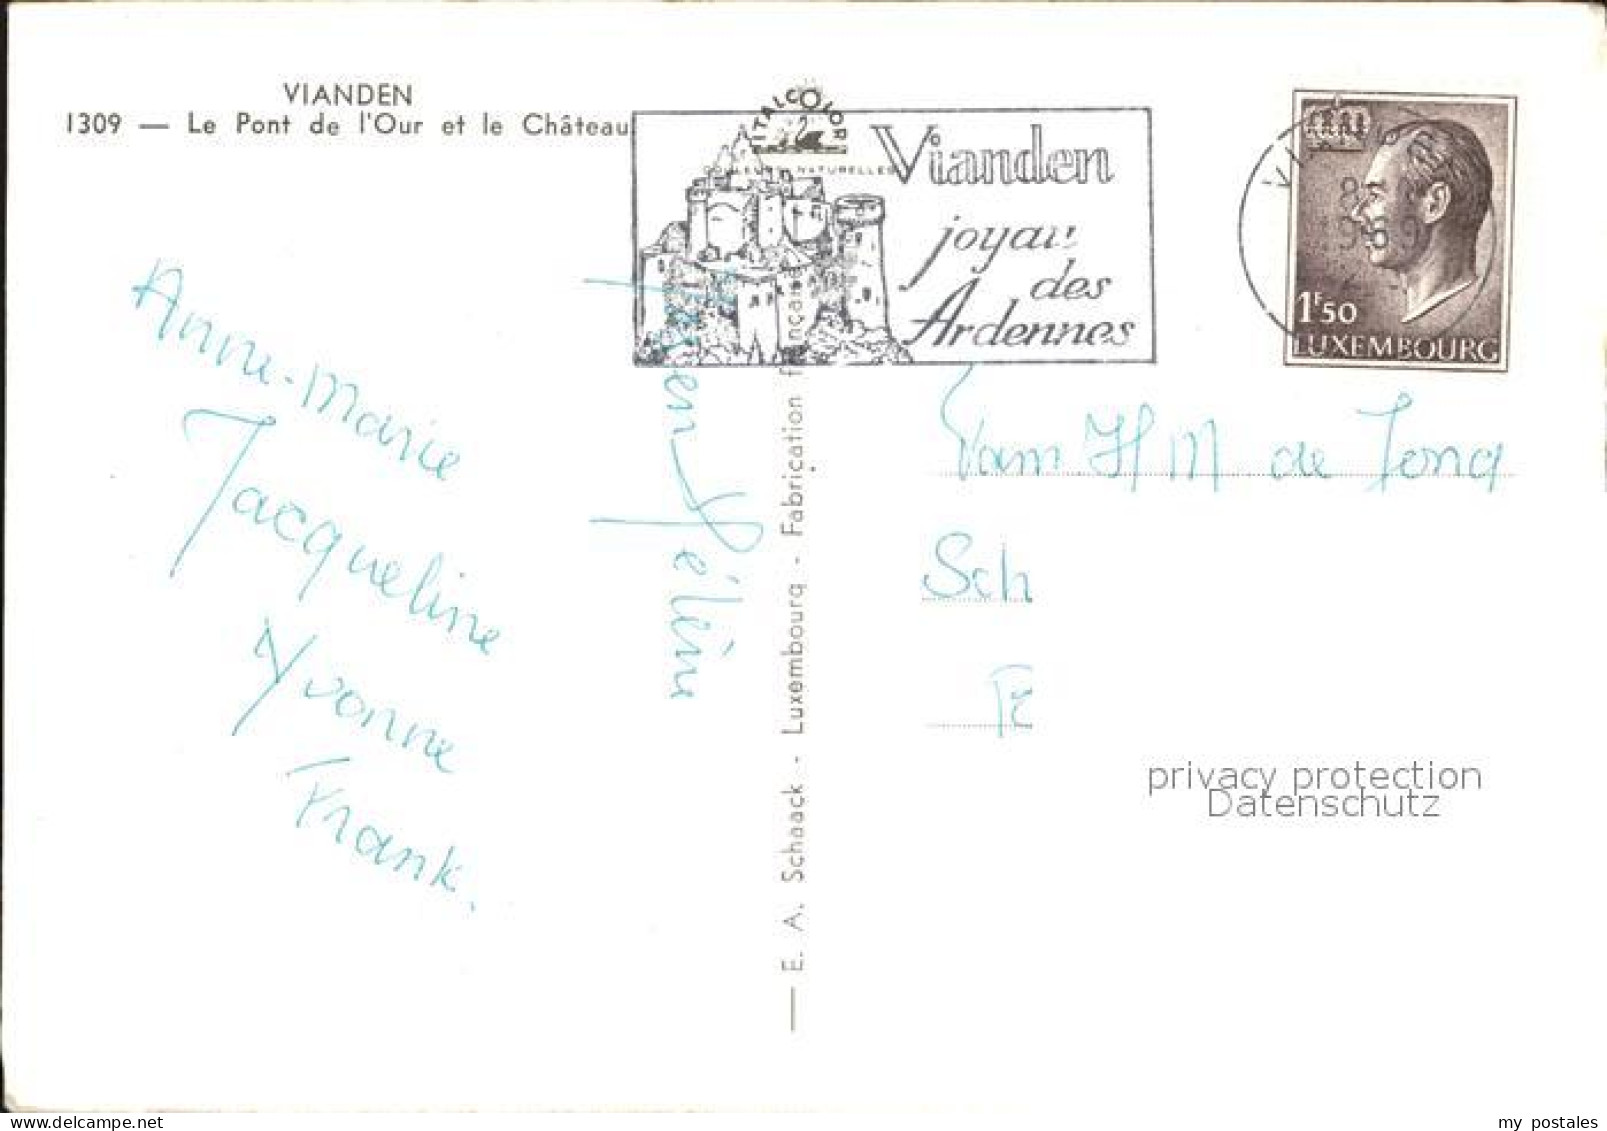 VIANDEN
1309 — Le Pont de l'Our et le Château
ITALCOLOR
COULEURS NATURELLES
Vianden
joyau
des
Ardennes
VIANDEN
8
1969
1F50
LUXEMBOURG
Anne-Marie
Jacqueline
Yvonne
Frank.
Hélène
— E. A. Schaack - Luxembourg - Fabrication française
Fam H M de Jong
Sch
privacy protection
Datenschutz
my postales